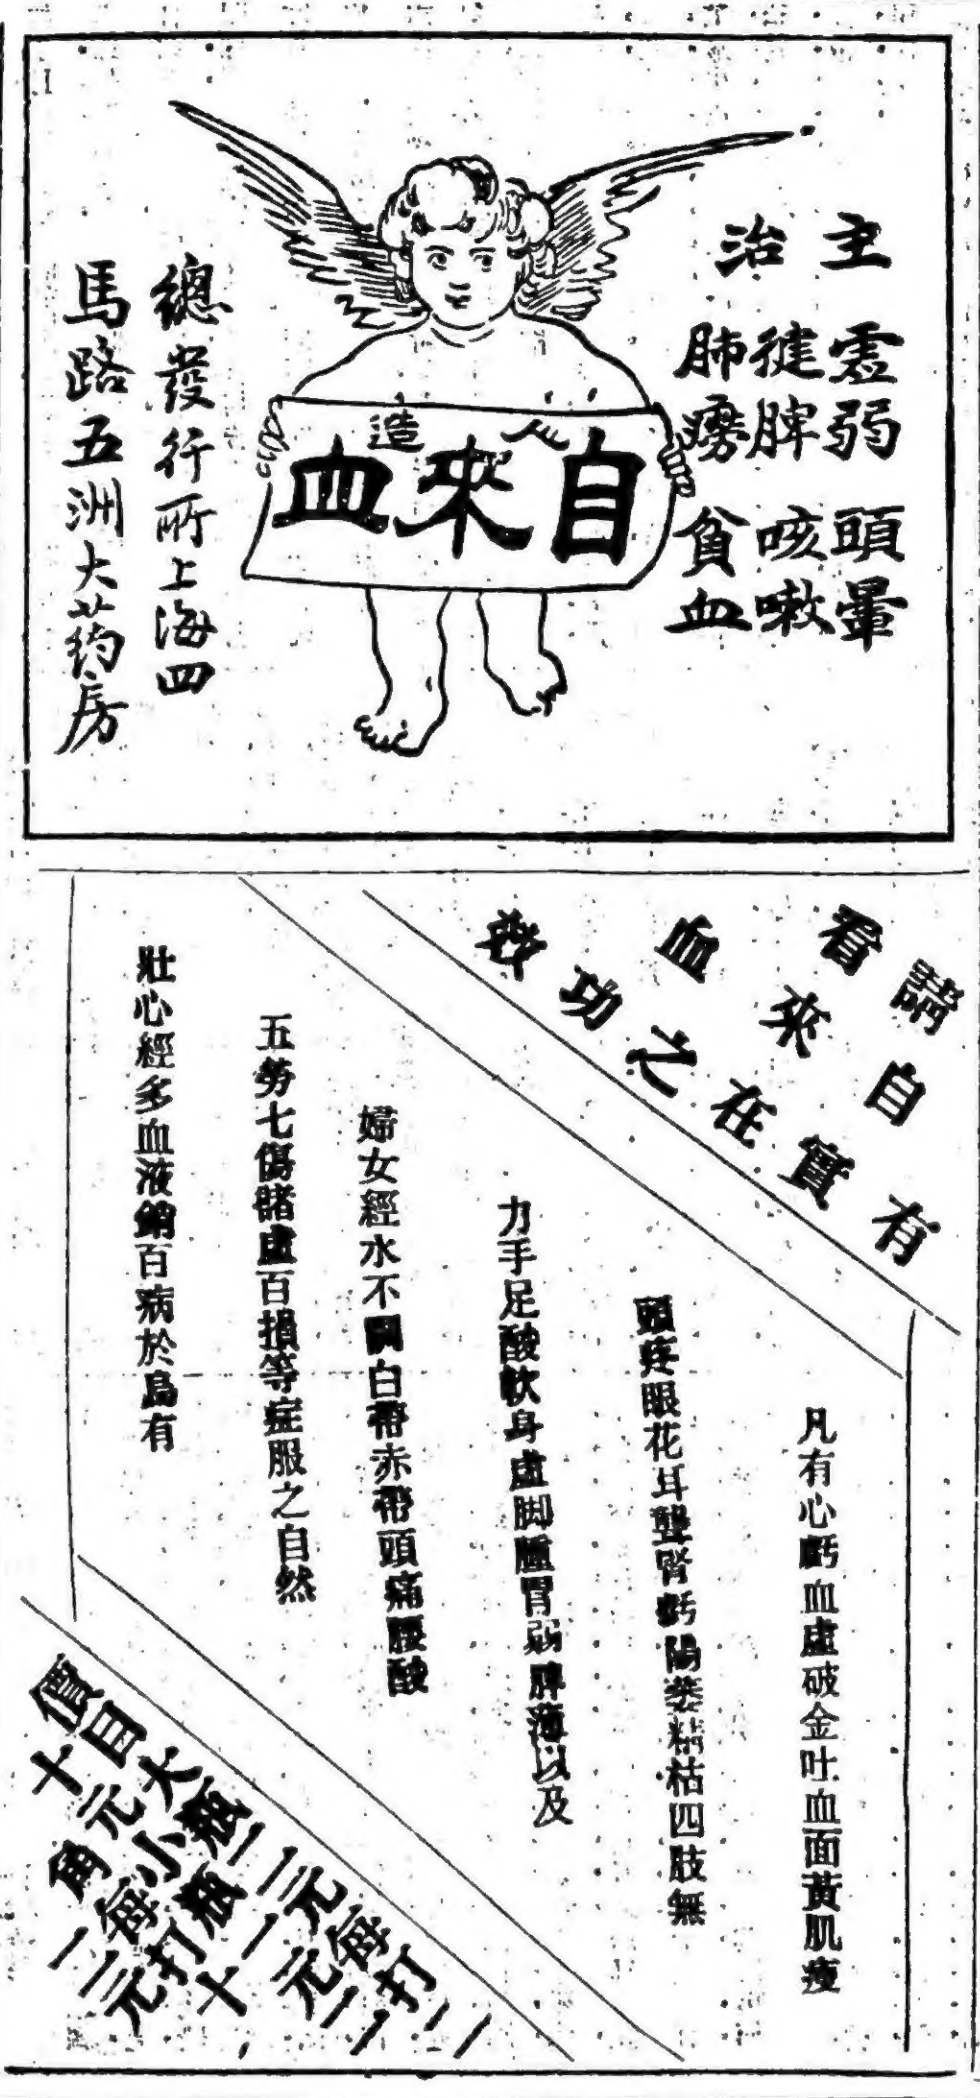 主治
虛弱 頭暈
徤脾 咳嗽
肺癆 貧血
人造
自來血
總發行所上海四
馬路五洲大药房
請看
自來血
有實在之功效
凡有心虧血虛破金吐血面黃肌瘦
頭疼眼花耳聾腎虧陽萎精枯四肢無
力手足酸軟身虛脚腫胃弱脾濕以及
婦女經水不調白帶赤帶頭痛腰酸
五勞七傷諸虛百損等症服之自然
壯心經多血液銷百病於烏有
價目大瓶二元每打二
十元小瓶一元二
角每打十
二元